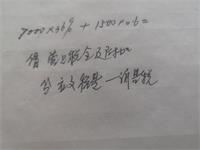 7000×36% + 1500×0.6=
借 营业税金及附加
贷 应交税费—消费税